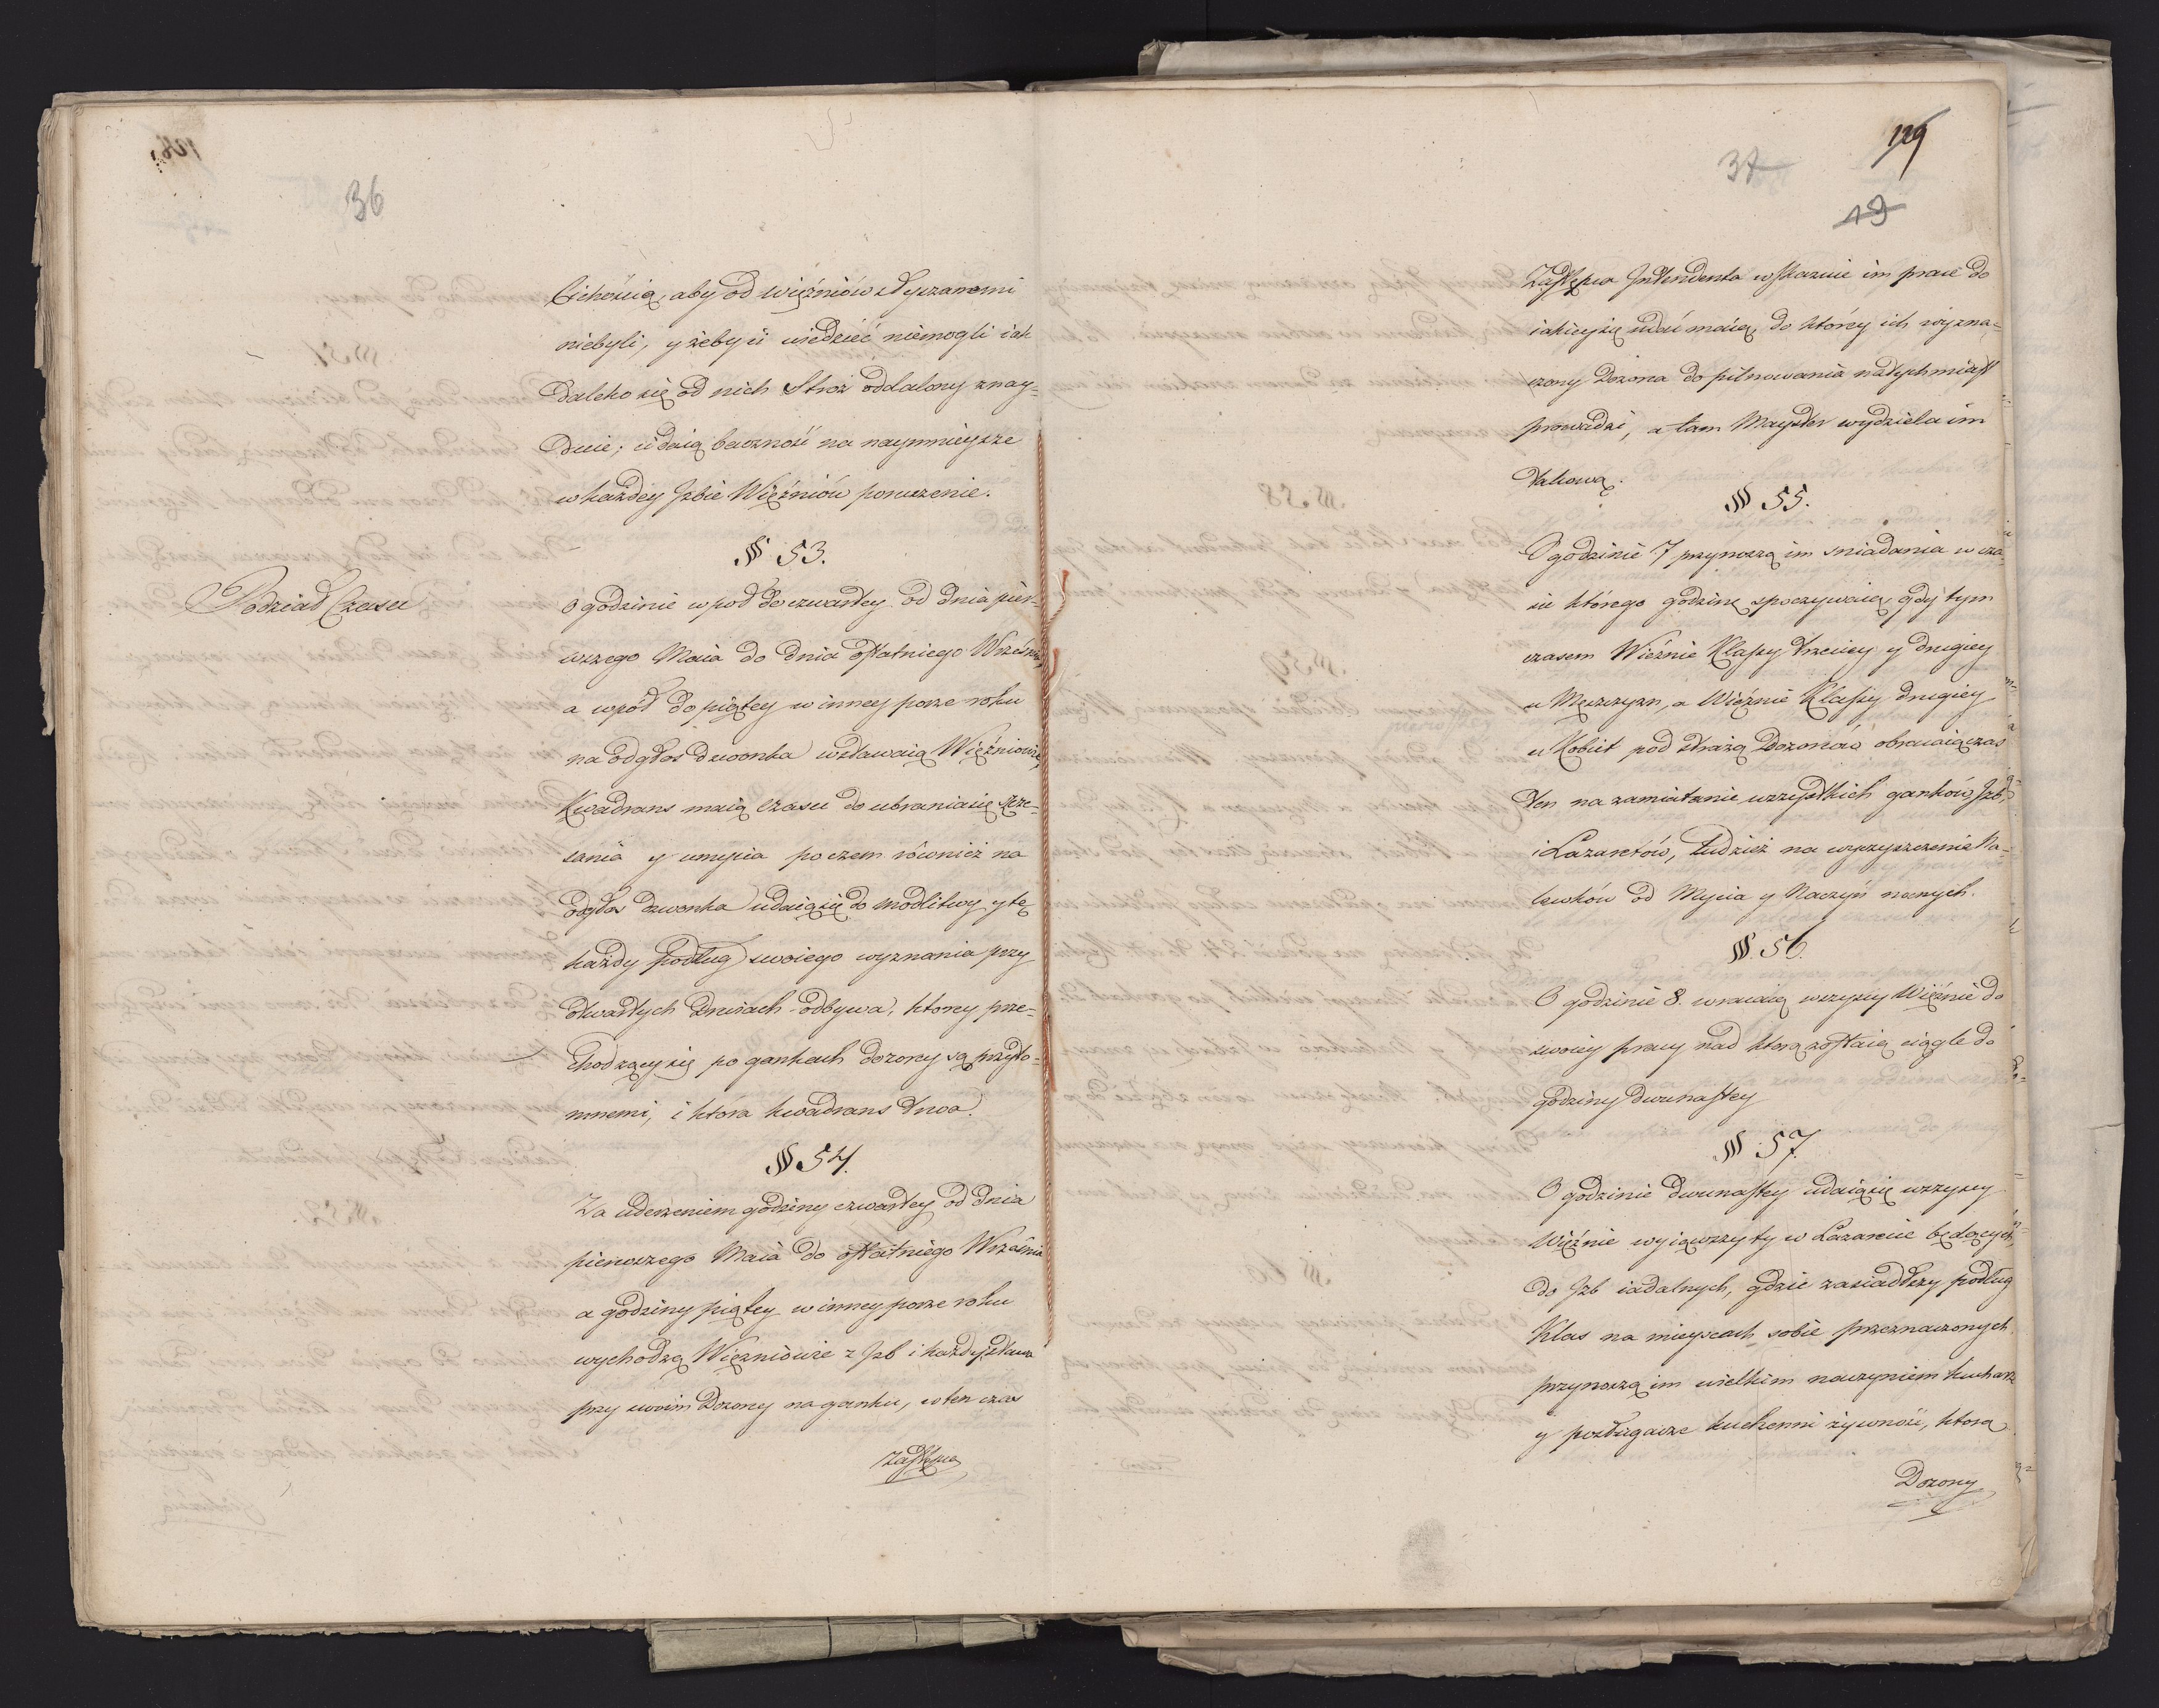 36
Cichością, aby od więźniów słyszanemi
niebyli, y żeby ci wiedzieć niemogli iak
daleko się od nich Stróż oddalony znay-
duie; i daią baczność na naymnieysze
w każdey Izbie Więźniów poruszenie.
§ 53.
Podział Czasu
O godzinie wpoł do czwartey od dnia pier-
wszego Maia do dnia ostatniego Września,
a wpół do piątey w inney porze roku
na odgłos dzwonka wstawaią Więźniowie,
Kwadrans maią czasu do ubrania się, cze-
sania y umycia poczem również na
odgłos dzwonka udaią się do modlitwy y tę
każdy podług swoiego wyznania przy
otwartych drzwiach odbywa, ktorey prze-
chodzący się po gankach dozorcy są przyto-
mnemi, i która kwadrans trwa.
§ 54.
Za uderzeniem godziny czwartey od dnia
pierwszego Maia do ostatniego Września
a godziny piątey w inney porze roku
wychodzą Więzniowie z Izb i każdy stawa
przy swoim Dozorcy na ganku, w ten czas
Zastępca
129
37
19
Zastępca Intendenta wskazuie im prace do
iakiey się udać maią, do którey ich wyzna-
czony Dozorca do pilnowania natychmiast
prowadzi, a tam Mayster wydziela im
takową.
§ 55.
O godzinie 7 przynoszą im sniadania w cza-
sie którego godzinę spoczywaią, gdy tym
czasem Więźnie Klassy trzeciey y drugiey
u Męszczyzn, a Więźnie Klassy drugiey
u Kobiet pod strażą Dozorców obracaią czas
ten na zamiatanie wszystkich ganków, Izb,
i Lazaretów, tudzież na wyczyszczenie Na-
lewków od Mycia y Naczyń nocnych.
§ 56.
O godzinie 8. wracaią wszyscy Więźnie do
swoiey pracy nad którą zostaią ciągle do
godziny dwunastey
§ 57.
O godzinie dwunastey udaią się wszyscy
Więźnie wyiąwszy ty w Lazarecie będących,
do Izb iadalnych, gdzie zasiadłszy podług
Klas na mieyscach sobie przeznaczonych
przynoszą im wielkim naczyniem kucharz
y posługacze kuchenni żywność, którą
Dozorcy